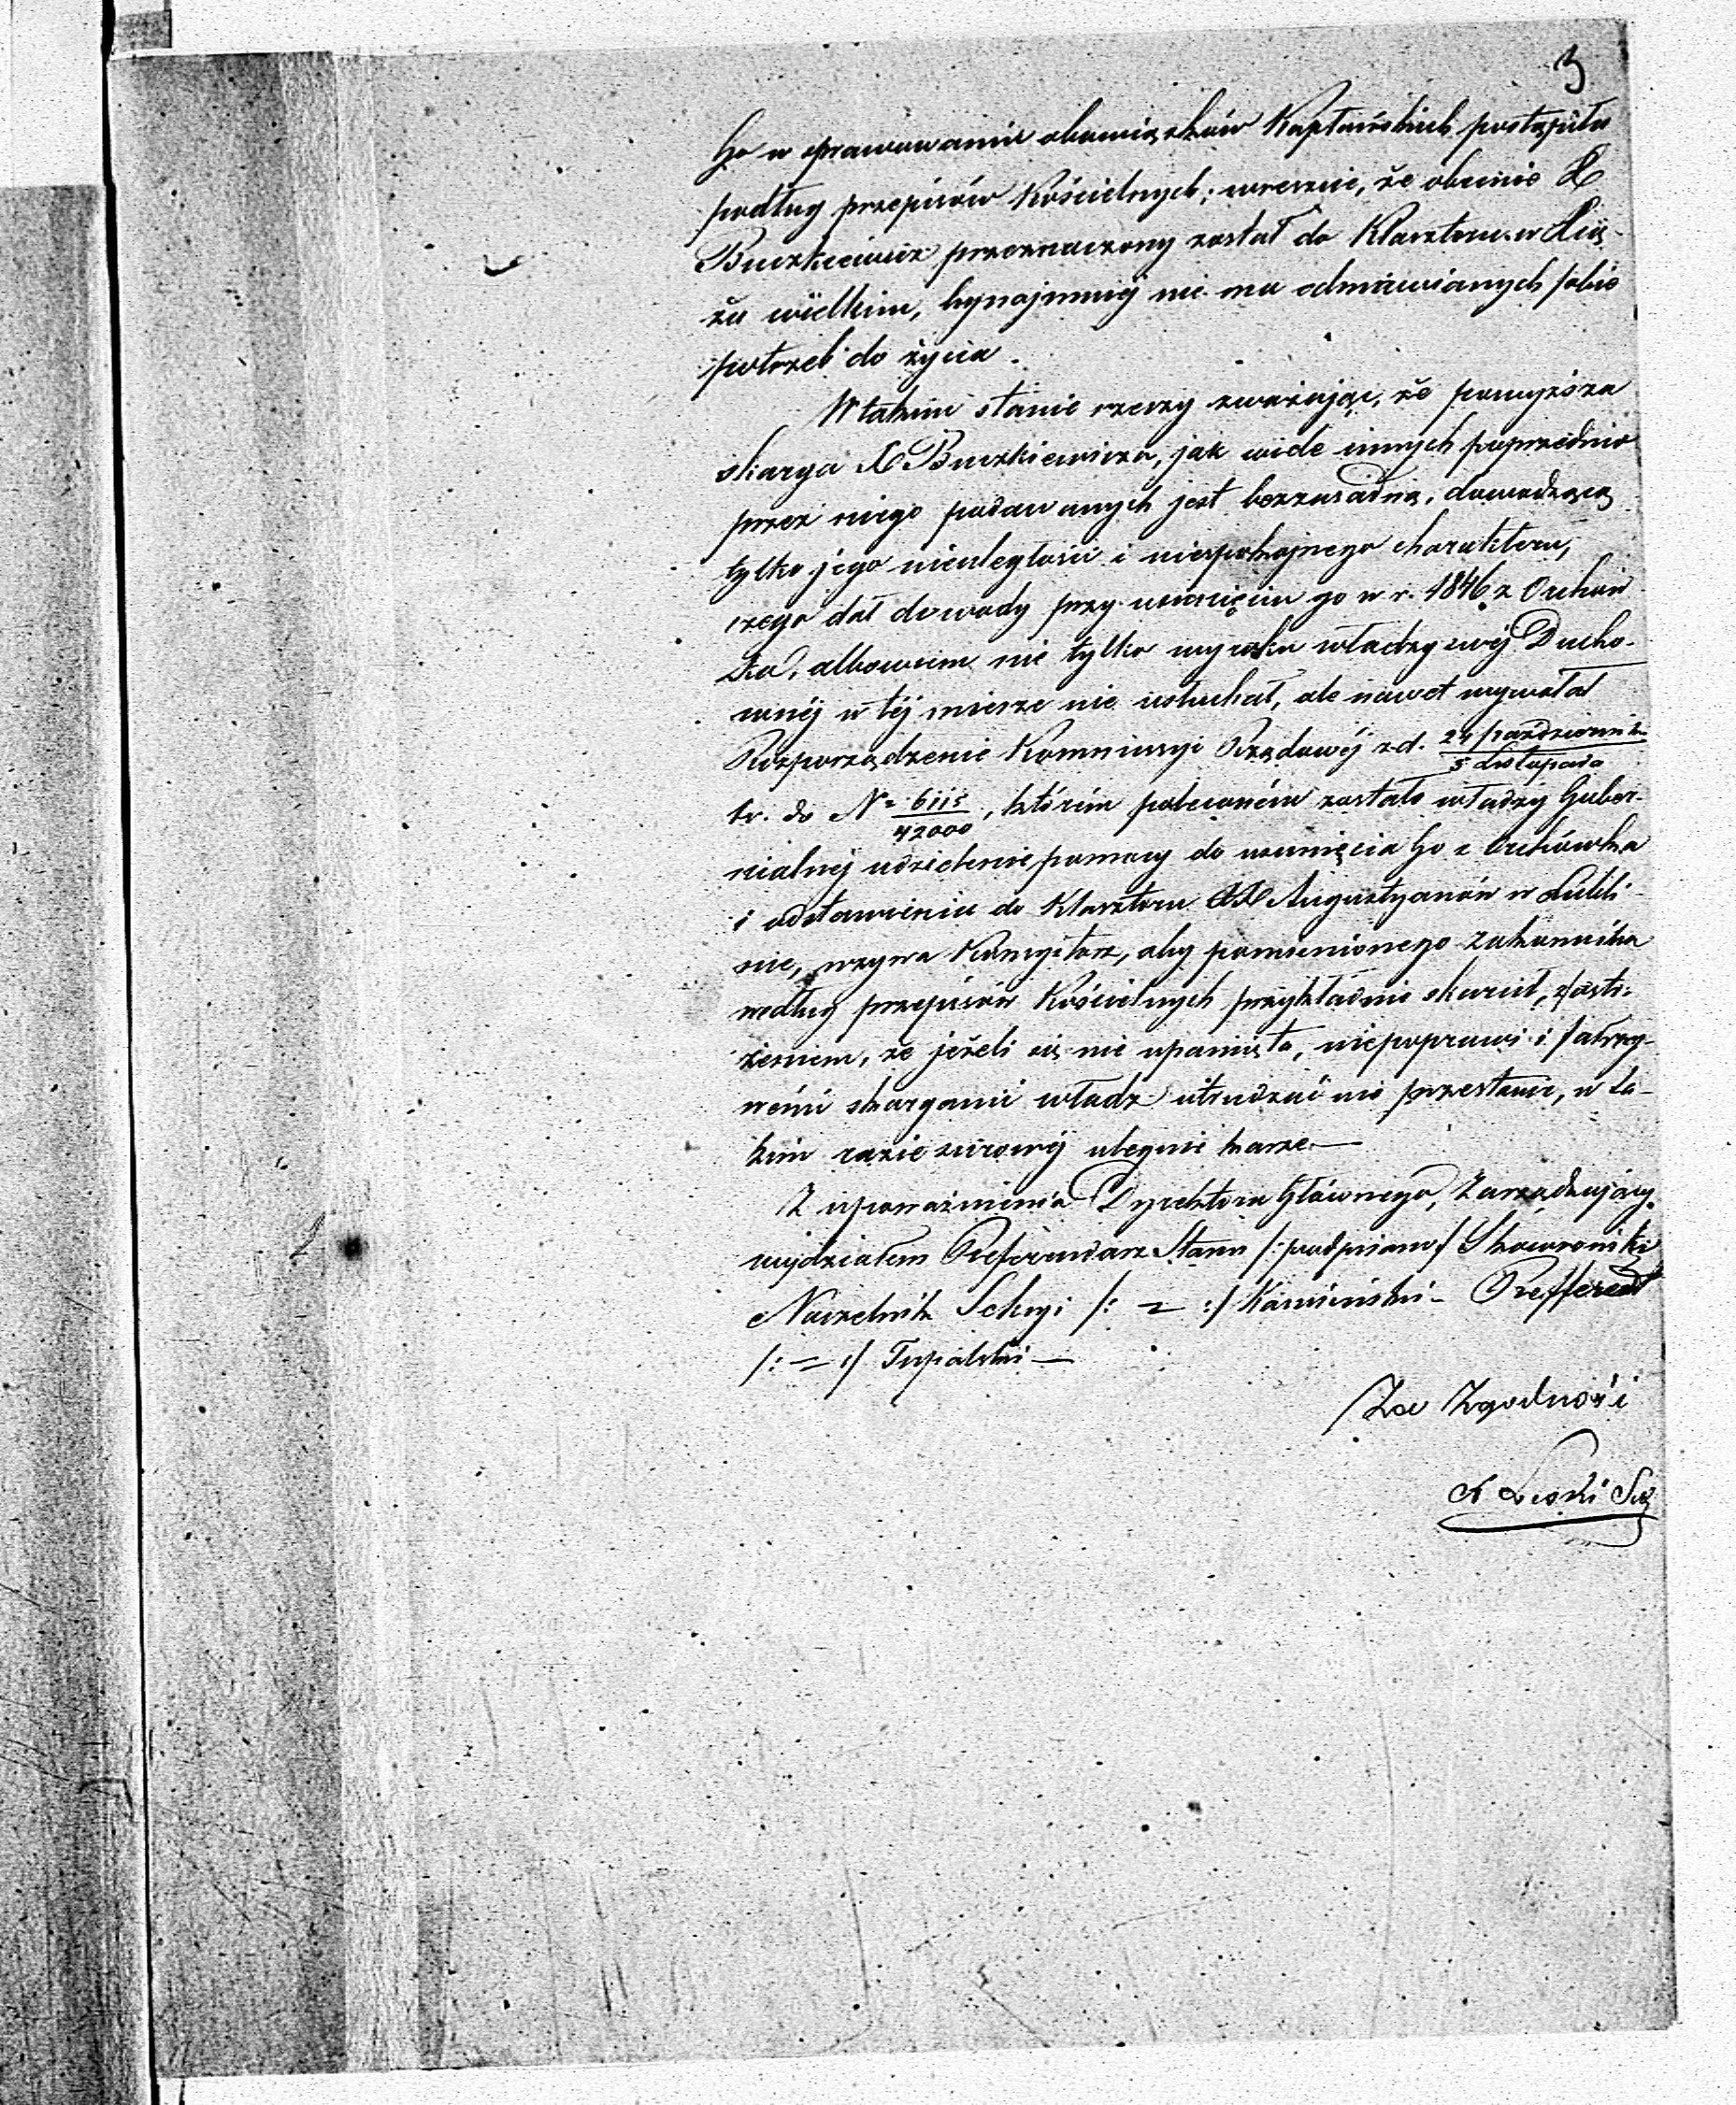 3
Go w sprawowaniu obowiązków Kapłańskich postąpiła
podług przepisów Kościelnych; wreszcie, że obecnie X
Buczkiewicz przeznaczony został do Klasztoru w Xię-
żu wielkim, bynajmniej nie ma odmawianych sobie
potrzeb do życia.
W takim stanie rzeczy zważając, że powyższa
skarga X Buczkiewicza, jak wiele innych poprzednio
przez niego podawanych jest bezzasadną, dowodzącą
tylko jego nieuległości i niespokojnego charakteru,
czego dał dowody przy usunięciu go w r. 1846 z Orchów
ka, albowiem nie tylko wyroku władzy swéj Ducho-
wnéj w téj mierze nie usłuchał, ale nawet wywołał
Rozporządzenie Kommissyi Rządowéj z d. 24 Października
5 Listopada
t.r. do No 6115
42000, którém poleconém zostało władzy Guber-
nialnéj udzielenie pomocy do usunięcia Go z Orchówka
i odstawienia do Klasztoru XX Augustyanów w Lubli-
nie, wzywa Konsystorz, aby pomienionego Zakonnika
według przepisów Kościelnych przykładnie skarcił, z zastrze-
żeniem, że jeżeli się nie upamięta, niepoprawi i fałszy-
wémi skargami władz utrudzać nie przestanie, w ta-
kim razie surowéj ulegnie karze.—
Z upoważnienia Dyrektora Głównego, Zarządzający
wydziałem Referendarz Stanu /:podpisano/ Skowroński
Naczelnik Sekcyi /: = :/ Kamiński - Refferent
/: = :/ Tupalski —
Za Zgodność